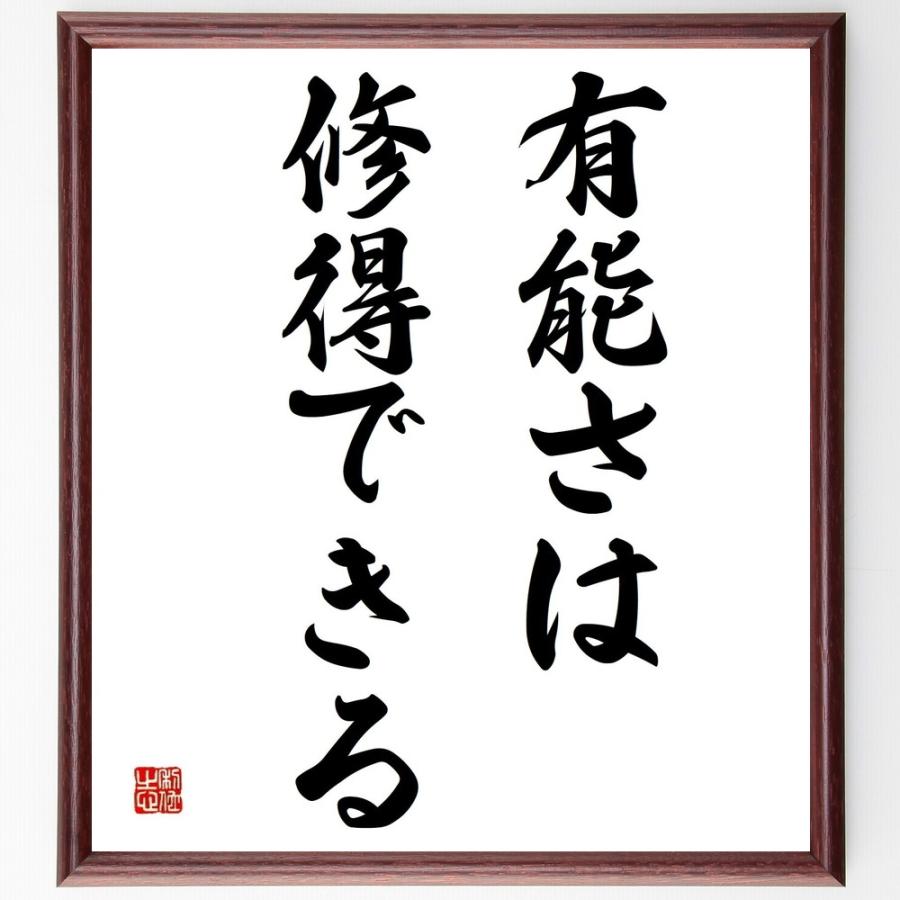 有能さは
修得できる